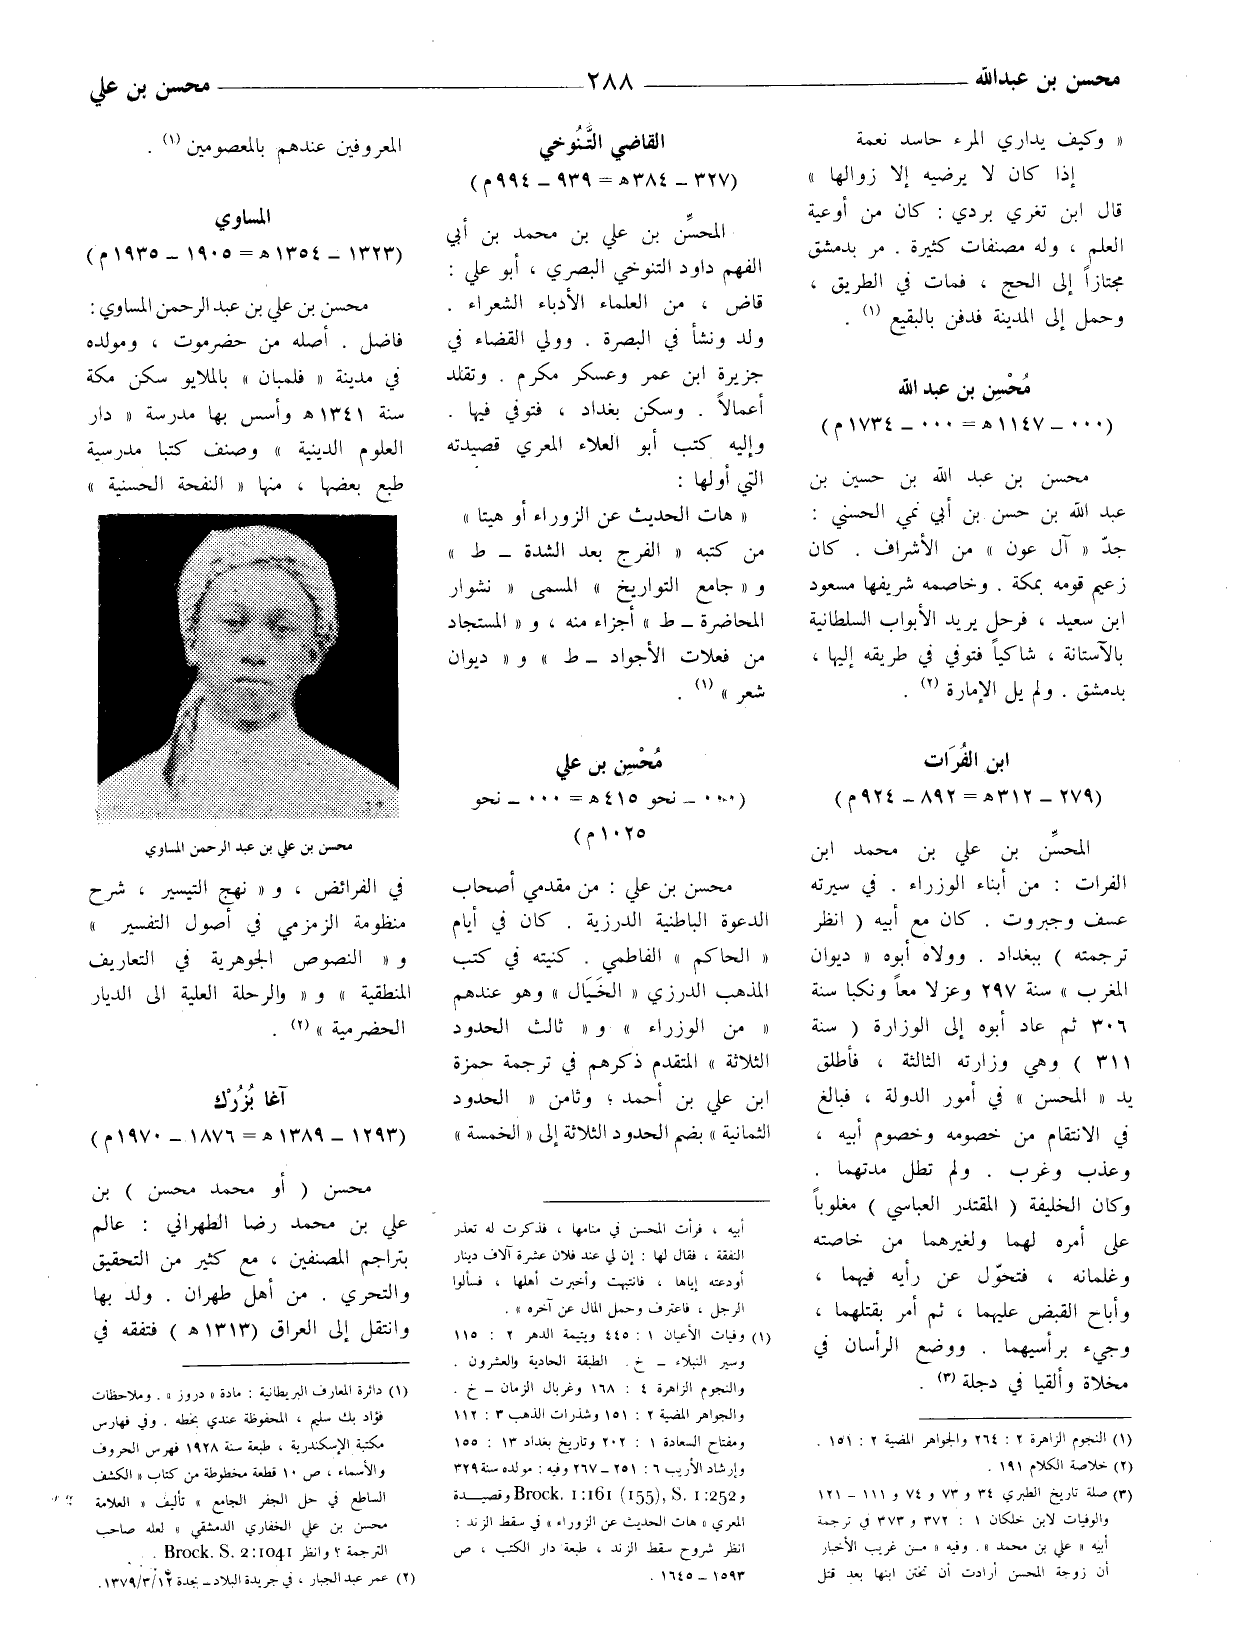 محسن بن عبدالله
٢٨٨
محسن بن علي
« وكيف يداري المرء حاسد نعمة
إذا كان لا يرضيه إلا زوالها »
قال ابن تغري بردي : كان من أوعية
العلم ، وله مصنفات كثيرة . مر بدمشق
مجتازاً إلى الحج ، فمات في الطريق ،
وحمل إلى المدينة فدفن بالبقيع (١) .
مُحْسِن بن عبد الله
(٠٠٠ ــ ١١٤٧ هـ = ٠٠٠ ــ ١٧٣٤ م)
محسن بن عبد الله بن حسين بن
عبد الله بن حسن بن أبي نمي الحسني :
جدّ « آل عون » من الأشراف . كان
زعيم قومه بمكة . وخاصمه شريفها مسعود
ابن سعيد ، فرحل يريد الأبواب السلطانية
بالآستانة ، شاكياً فتوفي في طريقه إليها ،
بدمشق . ولم يل الإمارة (٢) .
ابن الفُرَات
(٢٧٩ ــ ٣١٢ هـ = ٨٩٢ ــ ٩٢٤ م)
المحسِّن بن علي بن محمد ابن
الفرات : من أبناء الوزراء . في سيرته
عسف وجبروت . كان مع أبيه ( انظر
ترجمته ) ببغداد . وولاه أبوه « ديوان
المغرب » سنة ٢٩٧ وعزلا معاً ونكبا سنة
٣٠٦ ثم عاد أبوه إلى الوزارة ( سنة
٣١١ ) وهي وزارته الثالثة ، فأطلق
يد « المحسن » في أمور الدولة ، فبالغ
في الانتقام من خصومه وخصوم أبيه ،
وعذب وغرب . ولم تطل مدتهما .
وكان الخليفة ( المقتدر العباسي ) مغلوباً
على أمره لهما ولغيرهما من خاصته
وغلمانه ، فتحوّل عن رأيه فيهما ،
وأباح القبض عليهما ، ثم أمر بقتلهما ،
وجيء برأسيهما . ووضع الرأسان في
مخلاة وألقيا في دجلة (٣) .
(١) النجوم الزاهرة ٢ : ٢٦٤ والجواهر المضية ٢ : ١٥١ .
(٢) خلاصة الكلام ١٩١ .
(٣) صلة تاريخ الطبري ٣٤ و ٧٣ و ٧٤ و ١١١ – ١٢١
والوفيات لابن خلكان ١ : ٣٧٢ و ٣٧٣ في ترجمة
أبيه « علي بن محمد » . وفيه « مـن غريب الأخبار
أن زوجة المحسن أرادت أن تختن ابنها بعد قتل
القاضي التَّنُوخي
(٣٢٧ ــ ٣٨٤ هـ = ٩٣٩ ــ ٩٩٤ م)
المحسِّن بن علي بن محمد بن أبي
الفهم داود التنوخي البصري ، أبو علي :
قاض ، من العلماء الأدباء الشعراء .
ولد ونشأ في البصرة . وولي القضاء في
جزيرة ابن عمر وعسكر مكرم . وتقلد
أعمالاً . وسكن بغداد ، فتوفي فيها .
وإليه كتب أبو العلاء المعري قصيدته
التي أولها :
« هات الحديث عن الزوراء أو هيتا »
من كتبه « الفرج بعد الشدة ــ ط »
و « جامع التواريخ » المسمى « نشوار
المحاضرة ــ ط » أجزاء منه ، و « المستجاد
من فعلات الأجواد ــ ط » و « ديوان
شعر » (١) .
مُحْسِن بن علي
(٠٠٠ ــ نحو ٤١٥ هـ = ٠٠٠ ــ نحو
١٠٢٥ م)
محسن بن علي : من مقدمي أصحاب
الدعوة الباطنية الدرزية . كان في أيام
« الحاكم » الفاطمي . كنيته في كتب
المذهب الدرزي « الخَيَال » وهو عندهم
« من الوزراء » و « ثالث الحدود
الثلاثة » المتقدم ذكرهم في ترجمة حمزة
ابن علي بن أحمد ؛ وثامن « الحدود
الثمانية » بضم الحدود الثلاثة إلى « الخمسة »
أبيه ، فرأت المحسن في منامها ، فذكرت له تعذر
النفقة ، فقال لها : إن لي عند فلان عشرة آلاف دينار
أودعته إياها ، فانتبهت وأخبرت أهلها ، فسألوا
الرجل ، فاعترف وحمل المال عن آخره » .
(١) وفيات الأعيان ١ : ٤٤٥ ويتيمة الدهر ٢ : ١١٥
وسير النبلاء ــ خ . الطبقة الحادية والعشرون .
والنجوم الزاهرة ٤ : ١٦٨ وغربال الزمان – خ .
والجواهر المضية ٢ : ١٥١ وشذرات الذهب ٣ : ١١٢
ومفتاح السعادة ١ : ٢٠٢ وتاريخ بغداد ١٣ : ١٥٥
وإرشاد الأريب ٦ : ٢٥١ – ٢٦٧ وفيه : مولده سنة ٣٢٩
و Brock. 1:161 (155), S. 1:252 وقصيـــدة
المعري « هات الحديث عن الزوراء » في سقط الزند :
انظر شروح سقط الزند ، طبعة دار الكتب ، ص
١٥٩٣ – ١٦٤٥ .
المعروفين عندهم بالمعصومين (١) .
المساوي
(١٣٢٣ ــ ١٣٥٤ هـ = ١٩٠٥ ــ ١٩٣٥ م)
محسن بن علي بن عبد الرحمن المساوي :
فاضل . أصله من حضرموت ، ومولده
في مدينة « فلمبان » بالملايو سكن مكة
سنة ١٣٤١ هـ وأسس بها مدرسة « دار
العلوم الدينية » وصنف كتبا مدرسية
طبع بعضها ، منها « النفحة الحسنية »
محسن بن علي بن عبد الرحمن المساوي
في الفرائض ، و « نهج التيسير ، شرح
منظومة الزمزمي في أصول التفسير »
و « النصوص الجوهرية في التعاريف
المنطقية » و « والرحلة العلية الى الديار
الحضرمية » (٢) .
آغا بُزُرْك
(١٢٩٣ ــ ١٣٨٩ هـ = ١٨٧٦ ــ ١٩٧٠ م)
محسن ( أو محمد محسن ) بن
علي بن محمد رضا الطهراني : عالم
بتراجم المصنفين ، مع كثير من التحقيق
والتحري . من أهل طهران . ولد بها
وانتقل إلى العراق (١٣١٣ هـ ) فتفقه في
(١) دائرة المعارف البريطانية : مادة « دروز » . وملاحظات
فؤاد بك سليم ، المحفوظة عندي بخطه . وفي فهارس
مكتبة الإسكندرية ، طبعة سنة ١٩٢٨ فهرس الحروف
والأسماء ، ص ١٠ قطعة مخطوطة من كتاب « الكشف
الساطع في حل الجفر الجامع » تأليف « العلامة
محسن بن علي الخفاري الدمشقي » لعله صاحب
الترجمة ؟ وانظر Brock. S. 2:1041 .
(٢) عمر عبد الجبار ، في جريدة البلاد ــ بجدة ١٣٧٩/٣/١٢ .